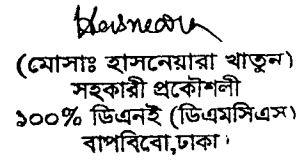 (মোসাঃ হাসনেয়ারা খাতুন)
সহকারী প্রকৌশলী
১০০% ডিএনই (ডিএমসিএস)
বাপবিবো,ঢাকা।